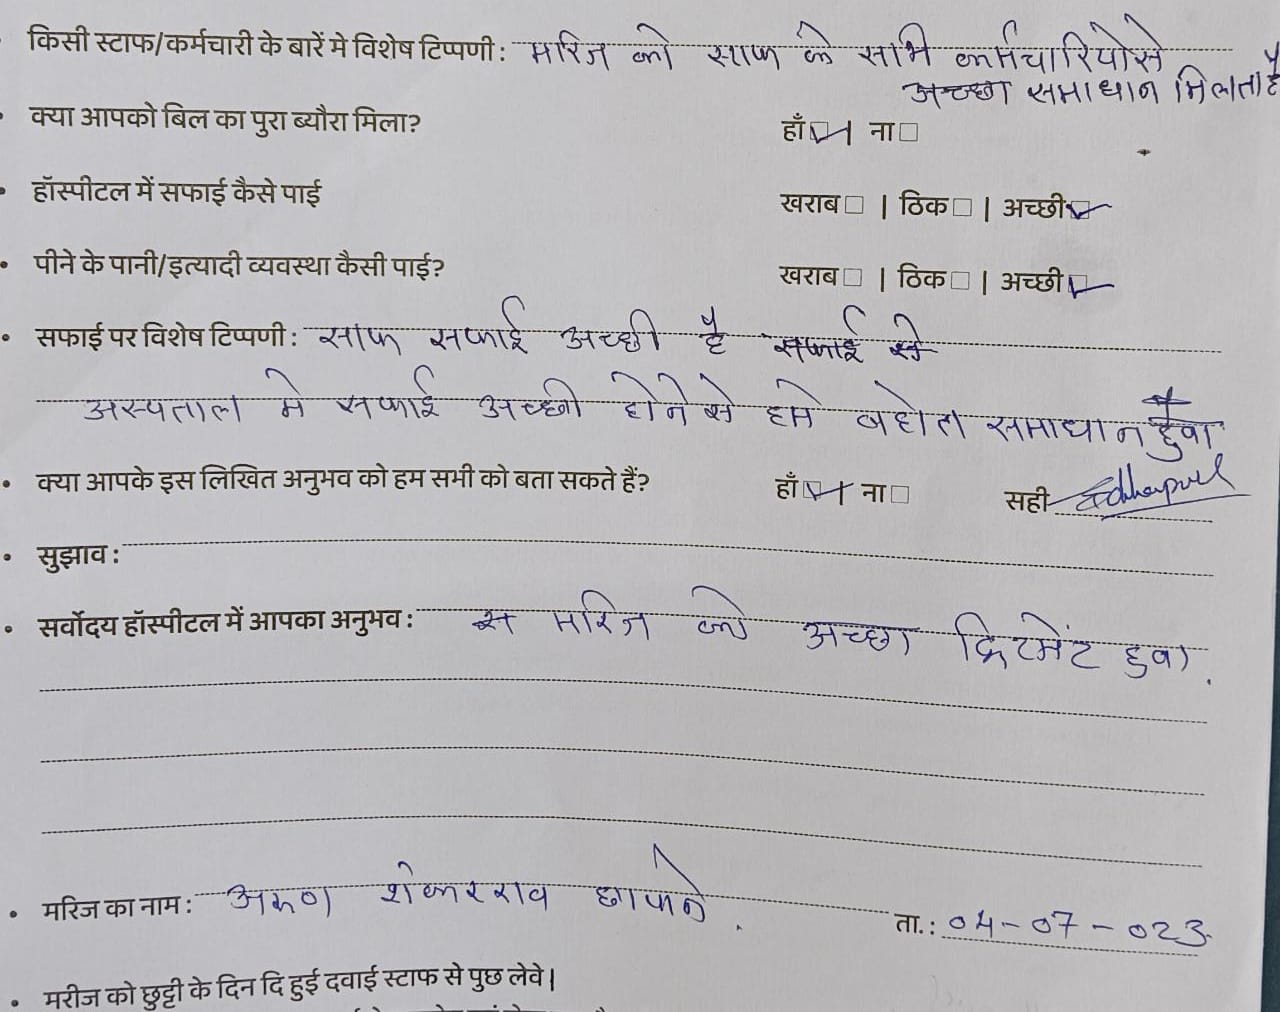 किसी स्टाफ/कर्मचारी के बारें मे विशेष टिप्पणी : मरिज को साफ के सभि कर्मचारियोसे
अच्छा समाधान मिलता है
क्या आपको बिल का पुरा ब्यौरा मिला? हाँ☑ | ना□
हॉस्पीटल में सफाई कैसे पाई खराब□ | ठिक□ | अच्छी☑
पीने के पानी/इत्यादी व्यवस्था कैसी पाई? खराब□ | ठिक□ | अच्छी☑
सफाई पर विशेष टिप्पणी : साफ सफाई अच्छी है
अस्पताल मे सफाई अच्छी होने से हमे बहोत समाधान हुवा
क्या आपके इस लिखित अनुभव को हम सभी को बता सकते हैं? हाँ☑ ना□ सही
सुझाव :
सर्वोदय हॉस्पीटल में आपका अनुभव : मरिज को अच्छा ट्रिटमेंट हुवा.
मरिज का नाम : अरुण शेकरराव छापाने. ता. : 04-07-023
मरीज को छुट्टी के दिन दि हुई दवाई स्टाफ से पुछ लेवे |